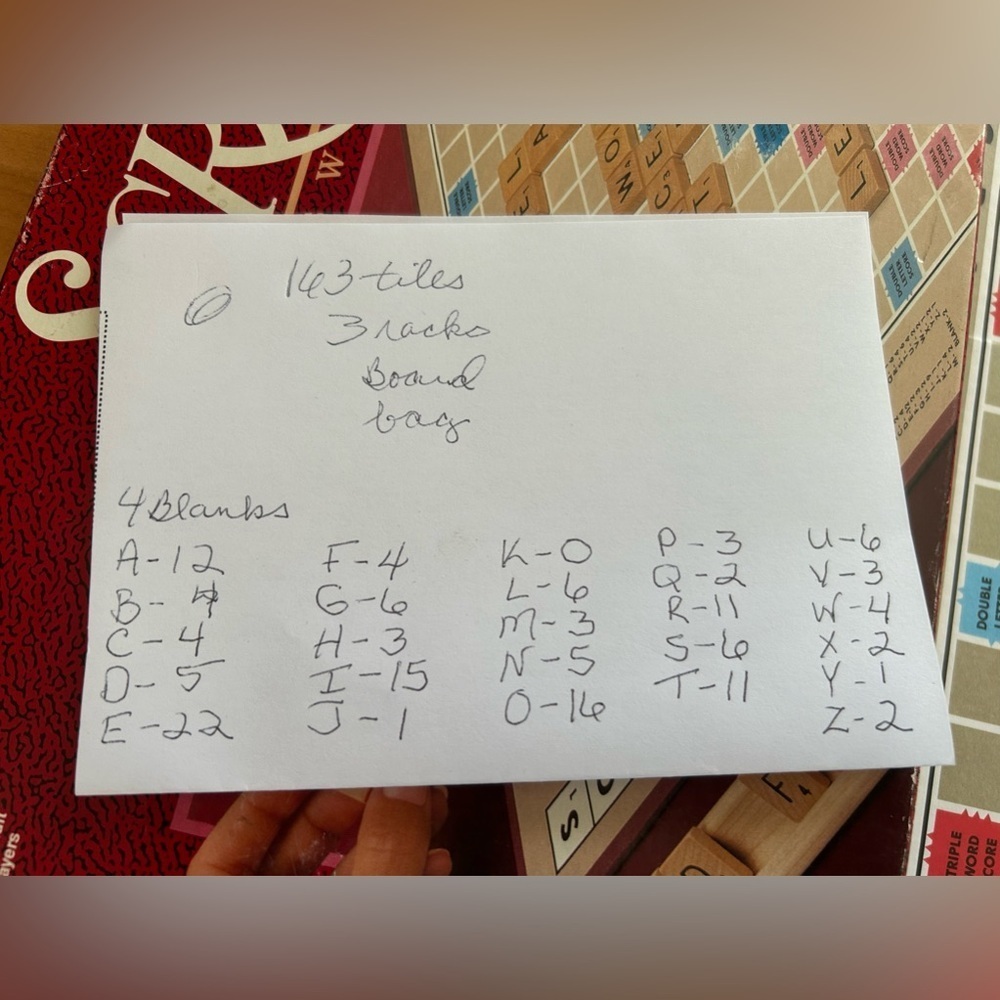 163 tiles
3 racks
Board
bag
4 Blanks
A-12
B-4
C-4
D-5
E-22
F-4
G-6
H-3
I-15
J-1
K-0
L-6
M-3
N-5
O-16
P-3
Q-2
R-11
S-6
T-11
U-6
V-3
W-4
X-2
Y-1
Z-2
DOUBLE
TRIPLE
WORD